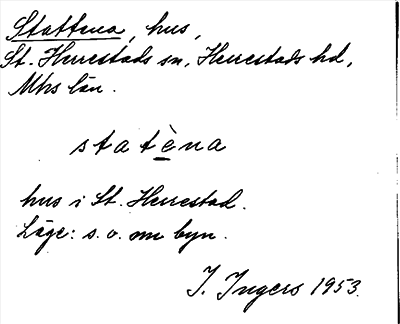 Stattena, hus,
St. Herrestads sn, Herrestads hd,
Mhs län.
statèna
hus i St. Herrestad.
Läge: s. o. om byn.
I. Ingers 1953.